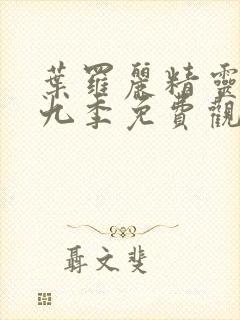 葉羅麗精靈
九季免費觀
聶文斐